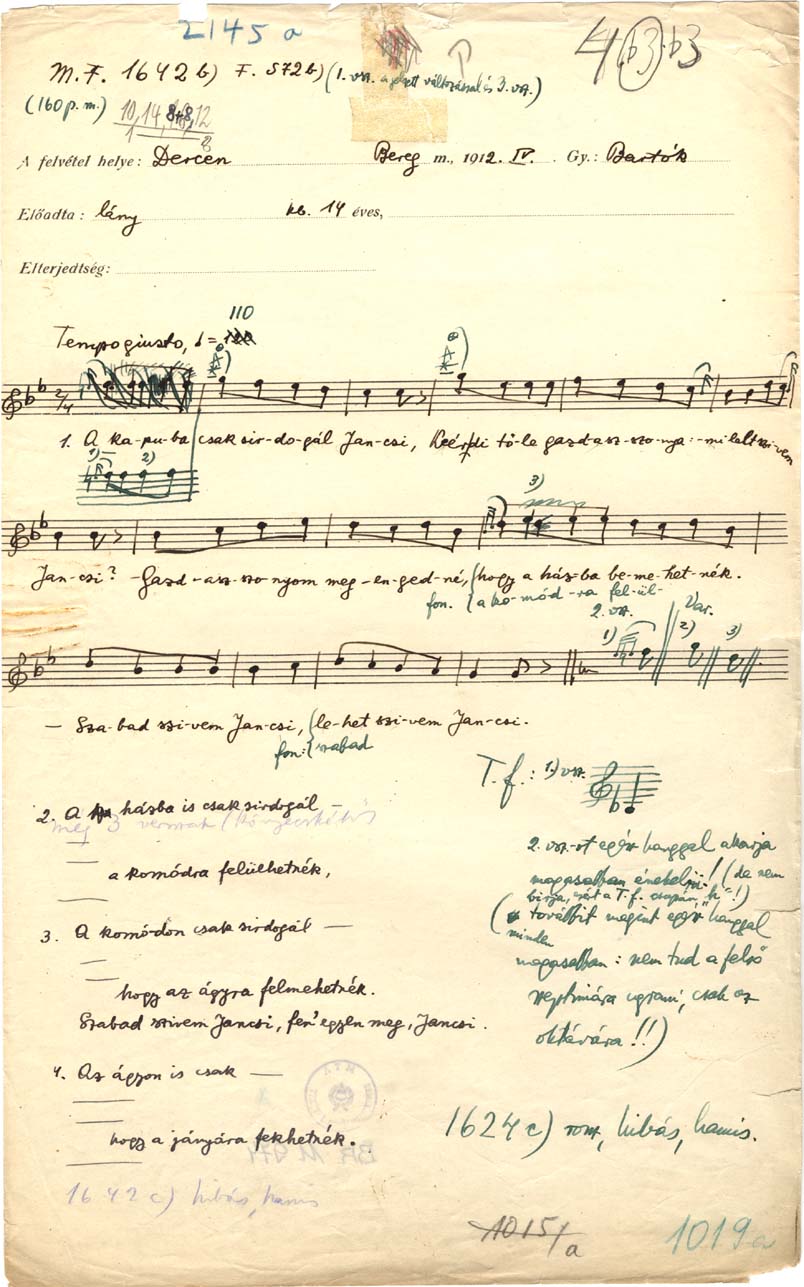 2145 a
4 ♭3 ♭3
M. F. 1642 b) F. 572 b) (1. vsz. a jelzett változással és 3. vsz.)
(160 p. m.)
A felvétel helye: Dercen Bereg m., 1912. IV. Gy.: Bartók
Előadta: lány kb. 14 éves,
Elterjedtség:
110
Tempo giusto, ♩=
2/4
1. A ka-pu-ba csak sir-do-gál Jan-csi, Ké-érdi tő-le gazd-asz-szo-nya: -mi lelt szi-vem
1) 2)
3)
Jan-csi? - Gazd-asz-szo-nyom meg-en-ged-né, hogy a ház-ba be-me-het-nék.
fon. a ko-mód-ra fel-ül-
2. vsz. Var.
1) 2) 3)
- Sza-bad szi-vem Jan-csi, le-het szi-vem Jan-csi.
fon: szabad
T. f.: 1) vsz.
2. A házba is csak sirdogál —
még 3 versszak
a komódra felülhetnék,
3. A komódon csak sirdogál —
hogy az ágyra felmehetnék.
Szabad szivem Jancsi, fen' egyen meg, Jancsi.
4. Az ágyon is csak —
hogy a jányára fekhetnék.
1642 c) hibás, hamis
2. vsz.-t egész hanggal akarja
magasabban énekelni! (de nem
birja, azért a T. f. csupán "h"!)
(minden továbbit megint egész hanggal
magasabban: nem tud a felső
septimára ugrani, csak az
oktávára!!)
1624 c) rossz, hibás, hamis.
1015/a
1019 a